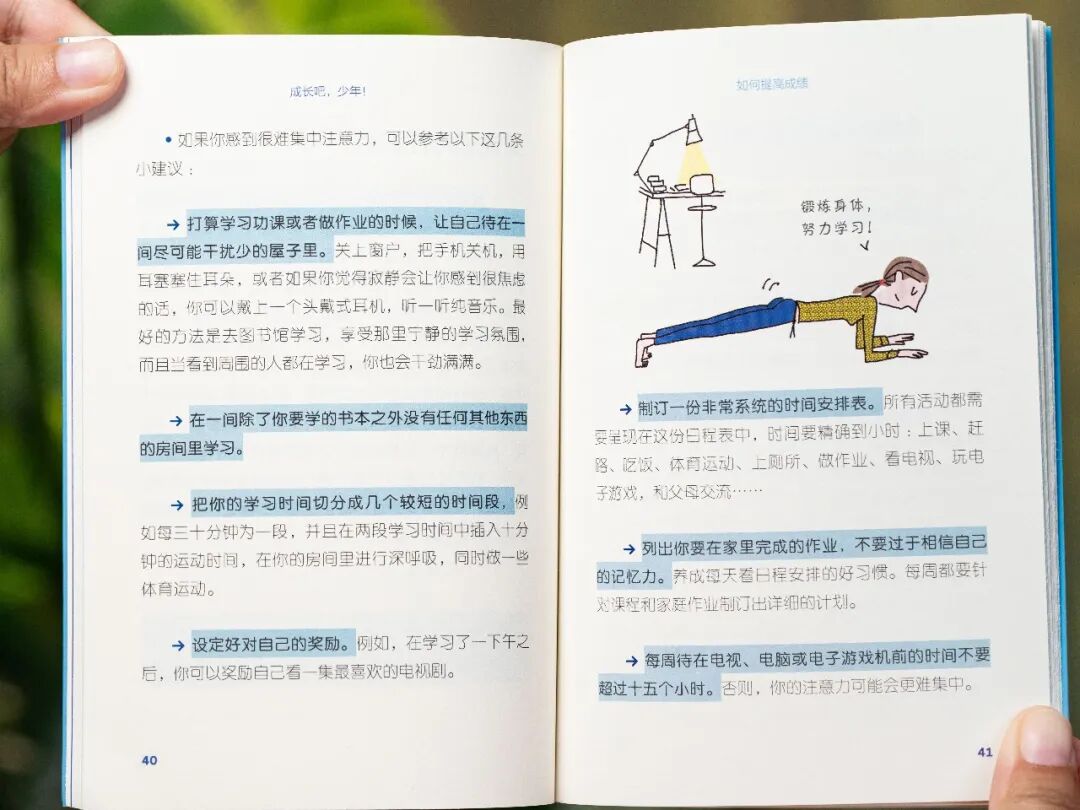 成长吧，少年！
• 如果你感到很难集中注意力，可以参考以下这几条
小建议：
→ 打算学习功课或者做作业的时候，让自己待在一
间尽可能干扰少的屋子里。关上窗户，把手机关机，用
耳塞塞住耳朵，或者如果你觉得寂静会让你感到很焦虑
的话，你可以戴上一个头戴式耳机，听一听纯音乐。最
好的方法是去图书馆学习，享受那里宁静的学习氛围，
而且当看到周围的人都在学习，你也会干劲满满。
→ 在一间除了你要学的书本之外没有任何其他东西
的房间里学习。
→ 把你的学习时间切分成几个较短的时间段，例
如每三十分钟为一段，并且在两段学习时间中插入十分
钟的运动时间，在你的房间里进行深呼吸，同时做一些
体育运动。
→ 设定好对自己的奖励。例如，在学习了一下午之
后，你可以奖励自己看一集最喜欢的电视剧。
40
如何提高成绩
锻炼身体，
努力学习！
→ 制订一份非常系统的时间安排表。所有活动都需
要呈现在这份日程表中，时间要精确到小时：上课、赶
路、吃饭、体育运动、上厕所、做作业、看电视、玩电
子游戏，和父母交流……
→ 列出你要在家里完成的作业，不要过于相信自己
的记忆力。养成每天看日程安排的好习惯。每周都要针
对课程和家庭作业制订出详细的计划。
→ 每周待在电视、电脑或电子游戏机前的时间不要
超过十五个小时。否则，你的注意力可能会更难集中。
41